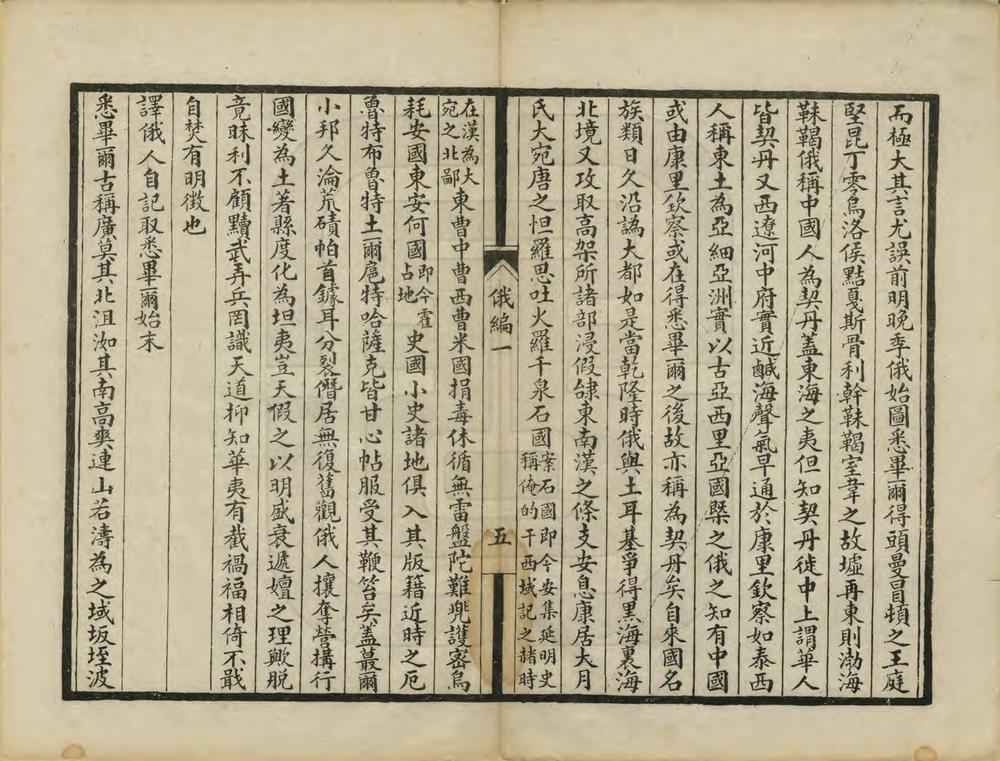 而極大其言尤誤前明晚季俄始圖悉畢爾得頭曼冒頓之王庭
堅昆丁零烏洛侯黠戛斯骨利幹靺鞨室韋之故墟再東則渤海
靺鞨俄稱中國人為契丹蓋東海之夷但知契丹徙中上謂華人
皆契丹又西遼河中府實近鹹海聲氣早通於康里欽察如泰西
人稱東土為亞細亞洲實以古亞西里亞國槩之俄之知有中國
或由康里欽察或在得悉畢爾之後故亦稱為契丹矣自來國名
族類日久沿譌大都如是當乾隆時俄與土耳基爭得黑海裏海
北境又攻取高架所諸部浸假隸東南漢之條支安息康居大月
氏大宛唐之怛羅思吐火羅千泉石國案石國即今安集延明史稱俺的干西域記之赭時
俄編一
五
在漢為大宛之北鄙東曹中曹西曹米國捐毒休循無雷盤陀難兜護密烏
秏安國東安何國即今霍占地史國小史諸地俱入其版籍近時之厄
魯特布魯特土爾扈特哈薩克皆甘心帖服受其鞭笞矣蓋蕞爾
小邦久淪荒磧帕首鐻耳分裂僭居無復舊觀俄人攘奪營搆行
國變為土著縣度化為坦夷豈天假之以明盛衰遞嬗之理歟脫
竟昧利不顧黷武弄兵罔識天道抑知華夷有截禍福相倚不戢
自焚有明徵也
譯俄人自記取悉畢爾始末
悉畢爾古稱廣莫其北沮洳其南高爽連山若濤為之域坂垤波